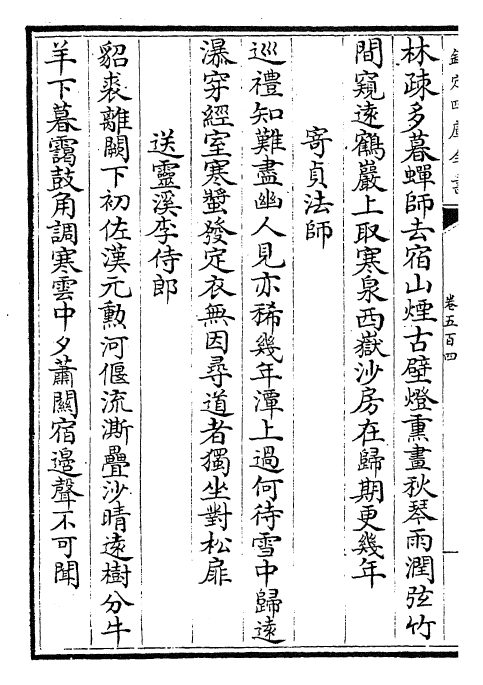 欽定四庫全書
卷五百四
林疎多暮蟬師去宿山煙古壁燈熏畫秋琴雨潤弦竹
間窺遠鶴巖上取寒泉西嶽沙房在歸期更幾年
寄貞法師
巡禮知難盡幽人見亦稀幾年潭上過何待雪中歸遠
瀑穿經室寒螿發定衣無因尋道者獨坐對松扉
送靈溪李侍郎
貂裘離闕下初佐漢元勲河偃流澌疊沙晴遠樹分牛
羊下暮靄鼓角調寒雲中夕蕭關宿邉聲不可聞